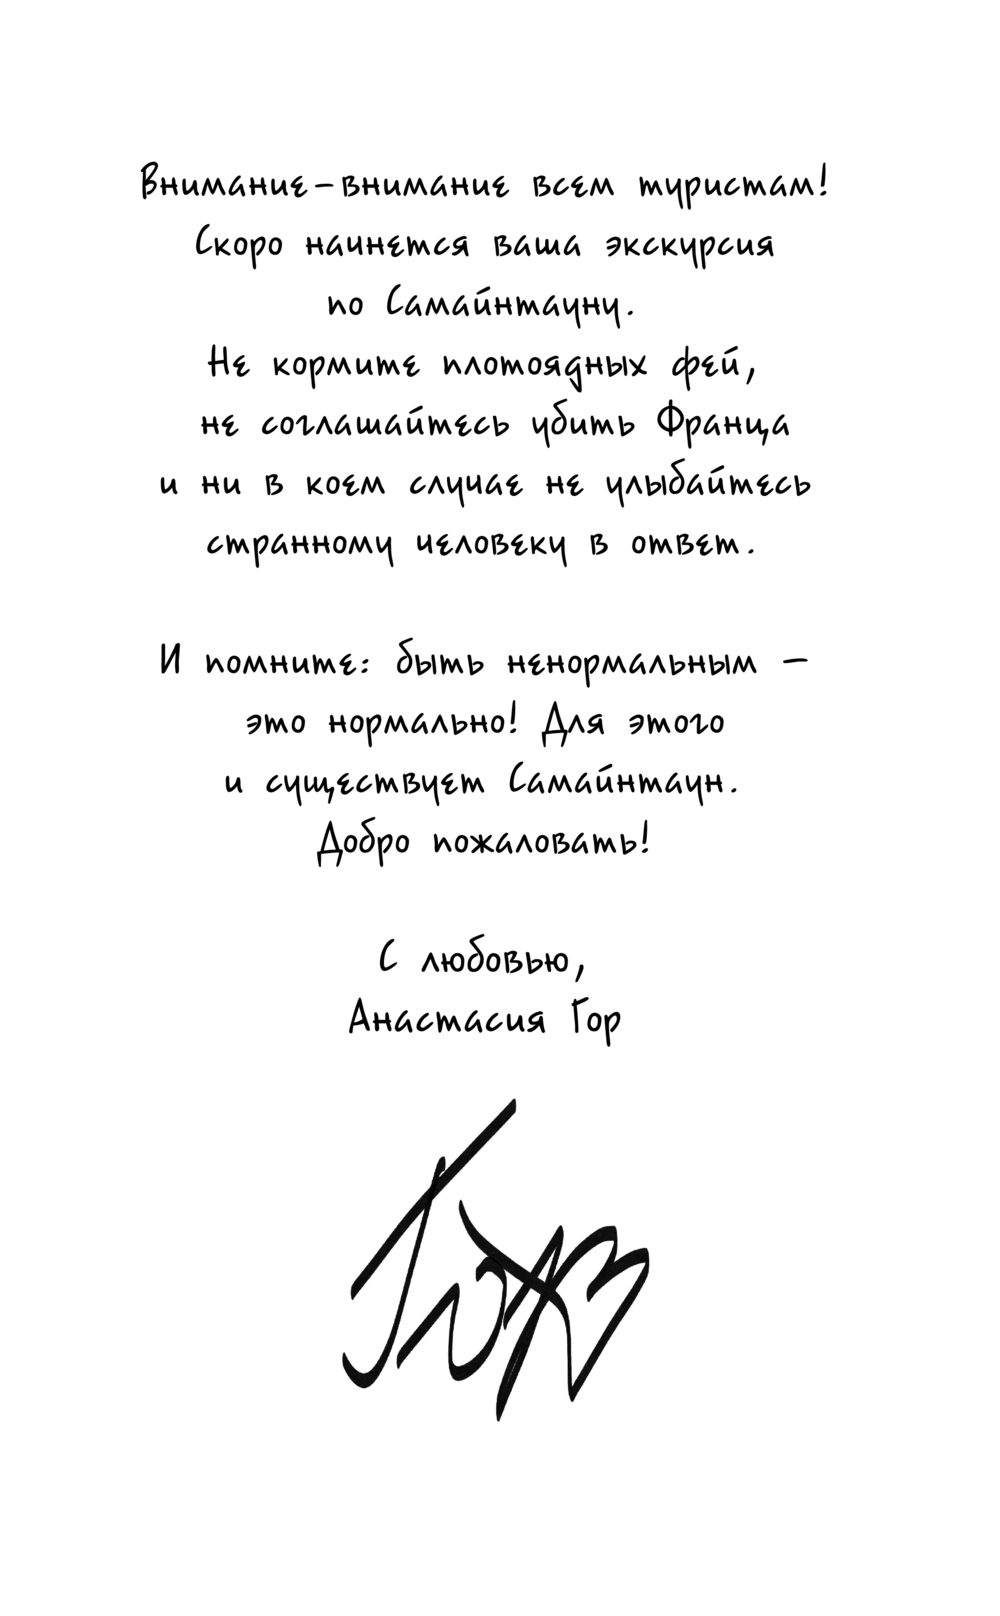 Внимание-внимание всем туристам!
Скоро начнется ваша экскурсия
по Самайнтауну.
Не кормите плотоядных фей,
не соглашайтесь убить Франца
и ни в коем случае не улыбайтесь
странному человеку в ответ.
И помните: быть ненормальным –
это нормально! Для этого
и существует Самайнтаун.
Добро пожаловать!
С любовью,
Анастасия Гор